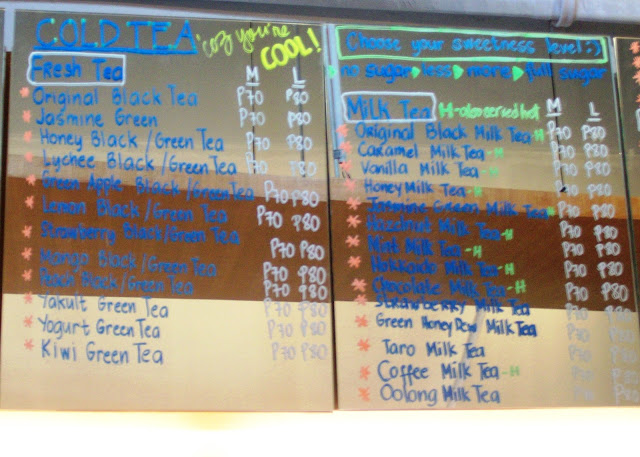 COLD TEA 'coz you're COOL!
Fresh Tea M L
* Original Black Tea P70 P80
* Jasmine Green P70 P80
* Honey Black/Green Tea P70 P80
* Lychee Black/Green Tea P70 P80
* Green Apple Black/Green Tea P70 P80
* Lemon Black/Green Tea P70 P80
* Strawberry Black/Green Tea P70 P80
* Mango Black/Green Tea P70 P80
* Peach Black/Green Tea P70 P80
* Yakult Green Tea P70 P80
* Yogurt Green Tea P70 P80
* Kiwi Green Tea P70 P80
Choose your sweetness level :)
no sugar less more full sugar
Milk Tea H-also served hot M L
* Original Black Milk Tea-H P70 P80
* Caramel Milk Tea-H P70 P80
* Vanilla Milk Tea-H P70 P80
* Honey Milk Tea-H P70 P80
* Jasmine Green Milk Tea-H P70 P80
* Hazelnut Milk Tea-H P70 P80
* Mint Milk Tea-H P70 P80
* Hokkaido Milk Tea-H P70 P80
* Chocolate Milk Tea-H P70 P80
* Strawberry Milk Tea P70 P80
* Green Honey Dew Milk Tea P70 P80
* Taro Milk Tea P70 P80
* Coffee Milk Tea-H P70 P80
* Oolong Milk Tea P70 P80